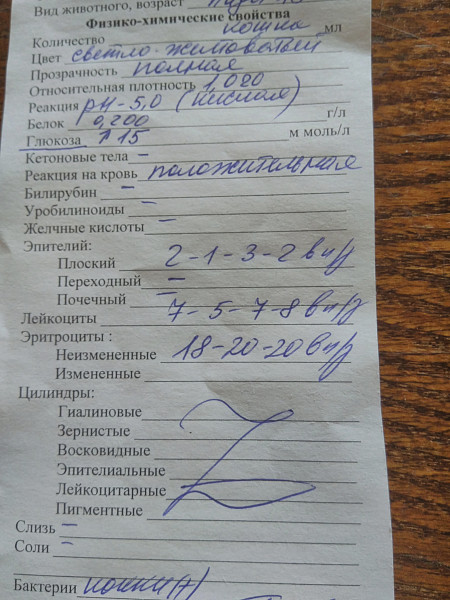 Вид животного, возраст
Физико-химические свойства
Количество кошка мл
Цвет светло-желтоватый
Прозрачность полная
Относительная плотность 1,020
Реакция pH-5,0 (кислая)
Белок 0,200 г/л
Глюкоза ↑ 15 м моль/л
Кетоновые тела –
Реакция на кровь положительная
Билирубин –
Уробилиноиды –
Желчные кислоты –
Эпителий:
Плоский 2-1-3-2 в п/з
Переходный –
Почечный –
Лейкоциты 7-5-7-8 в п/з
Эритроциты :
Неизмененные 18-20-20 в п/з
Измененные
Цилиндры:
Гиалиновые
Зернистые
Восковидные
Эпителиальные
Лейкоцитарные
Пигментные
Слизь –
Соли –
Бактерии кокки (+)